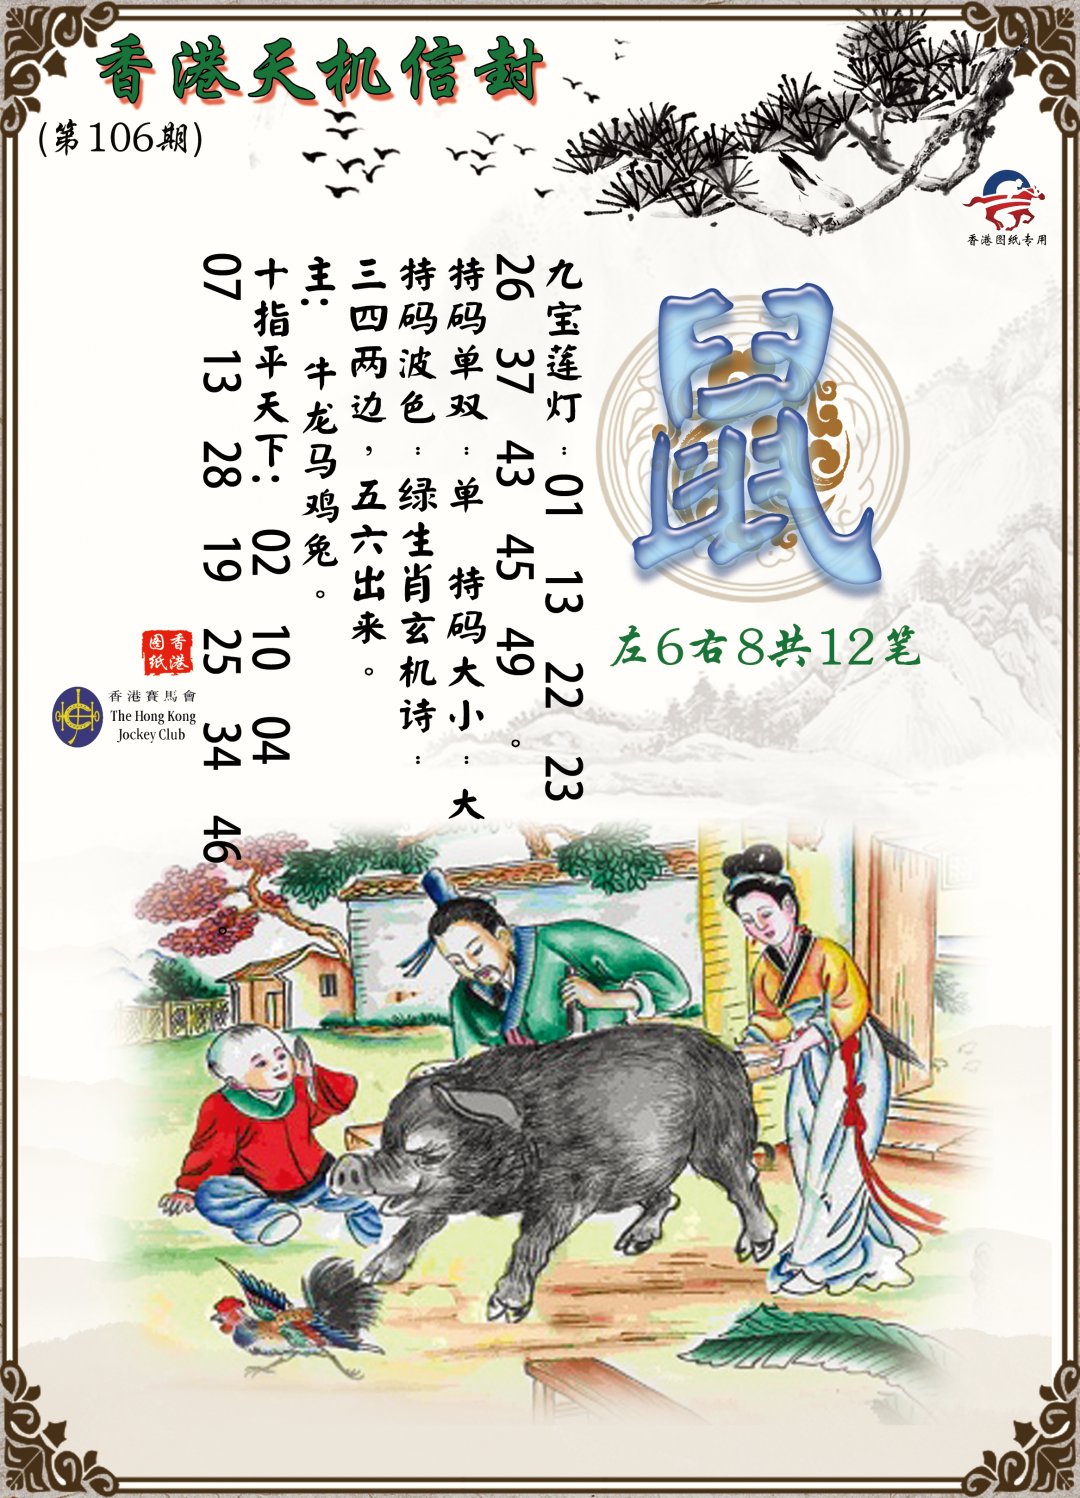 香港天机信封
(第106期)
香港图纸专用
鼠
左6右8共12笔
九宝莲灯：01 13 22 23
26 37 43 45 49。
特码单双：单 特码大小：大
特码波色：绿生肖玄机诗：
三四两边，五六出来。
主： 牛龙马鸡兔。
十指平天下： 02 10 04
07 13 28 19 25 34 46。
香港
图纸
香港賽馬會
The Hong Kong
Jockey Club